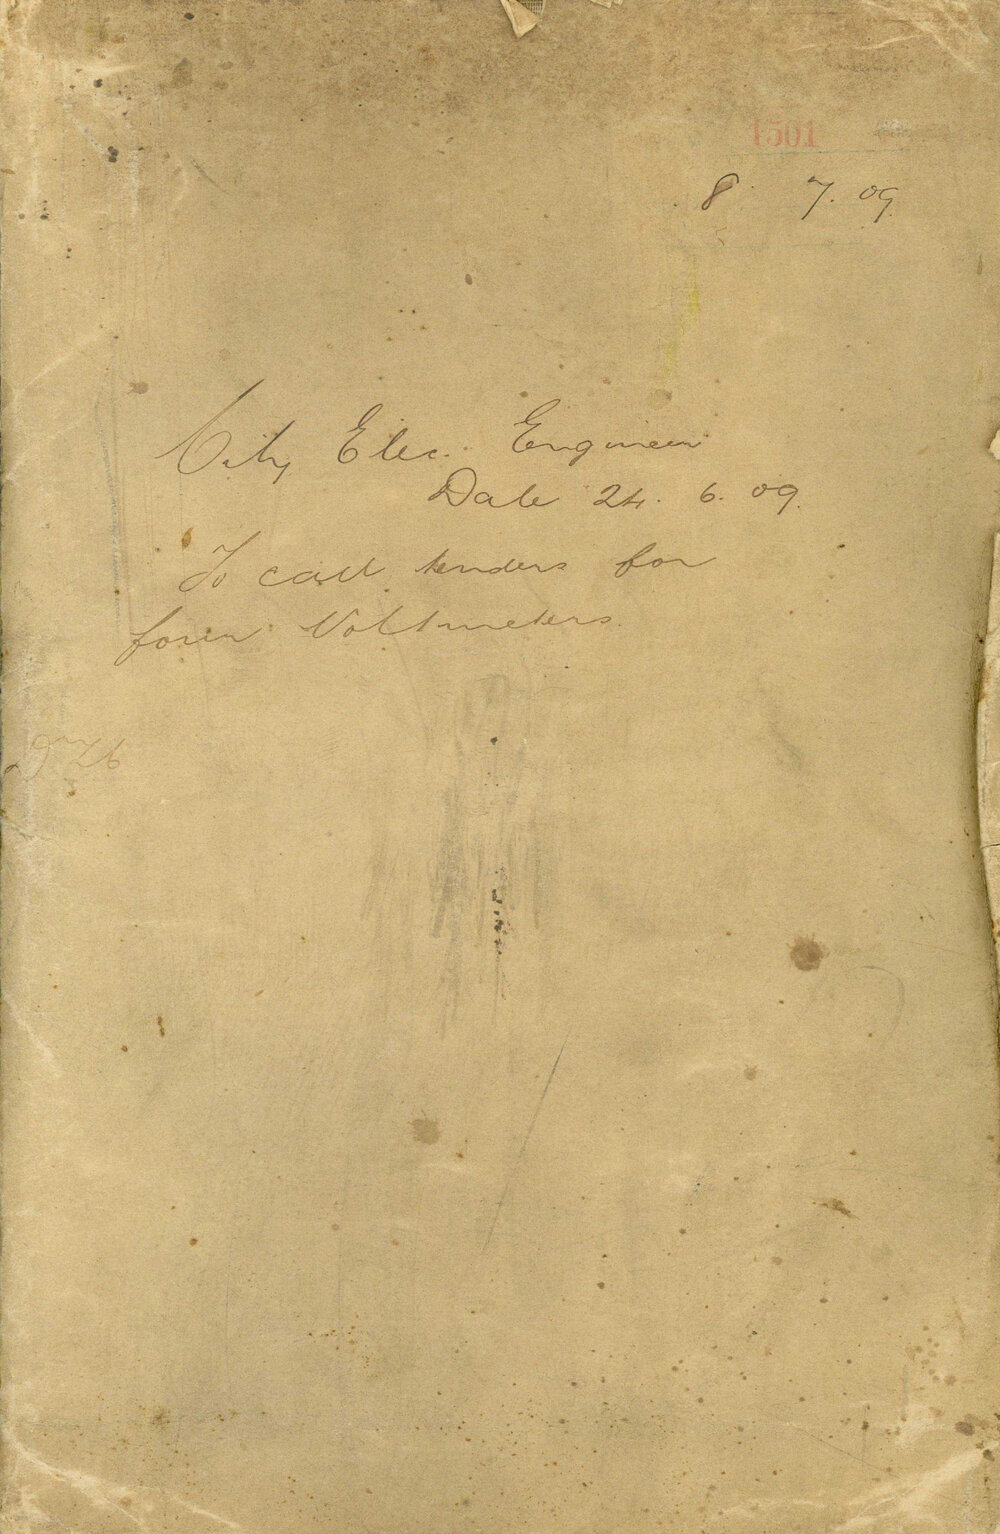 1501
8. 7. 09.
City Elec. Engineer
Date 24. 6. 09.
To call tenders for
four Voltmeters.